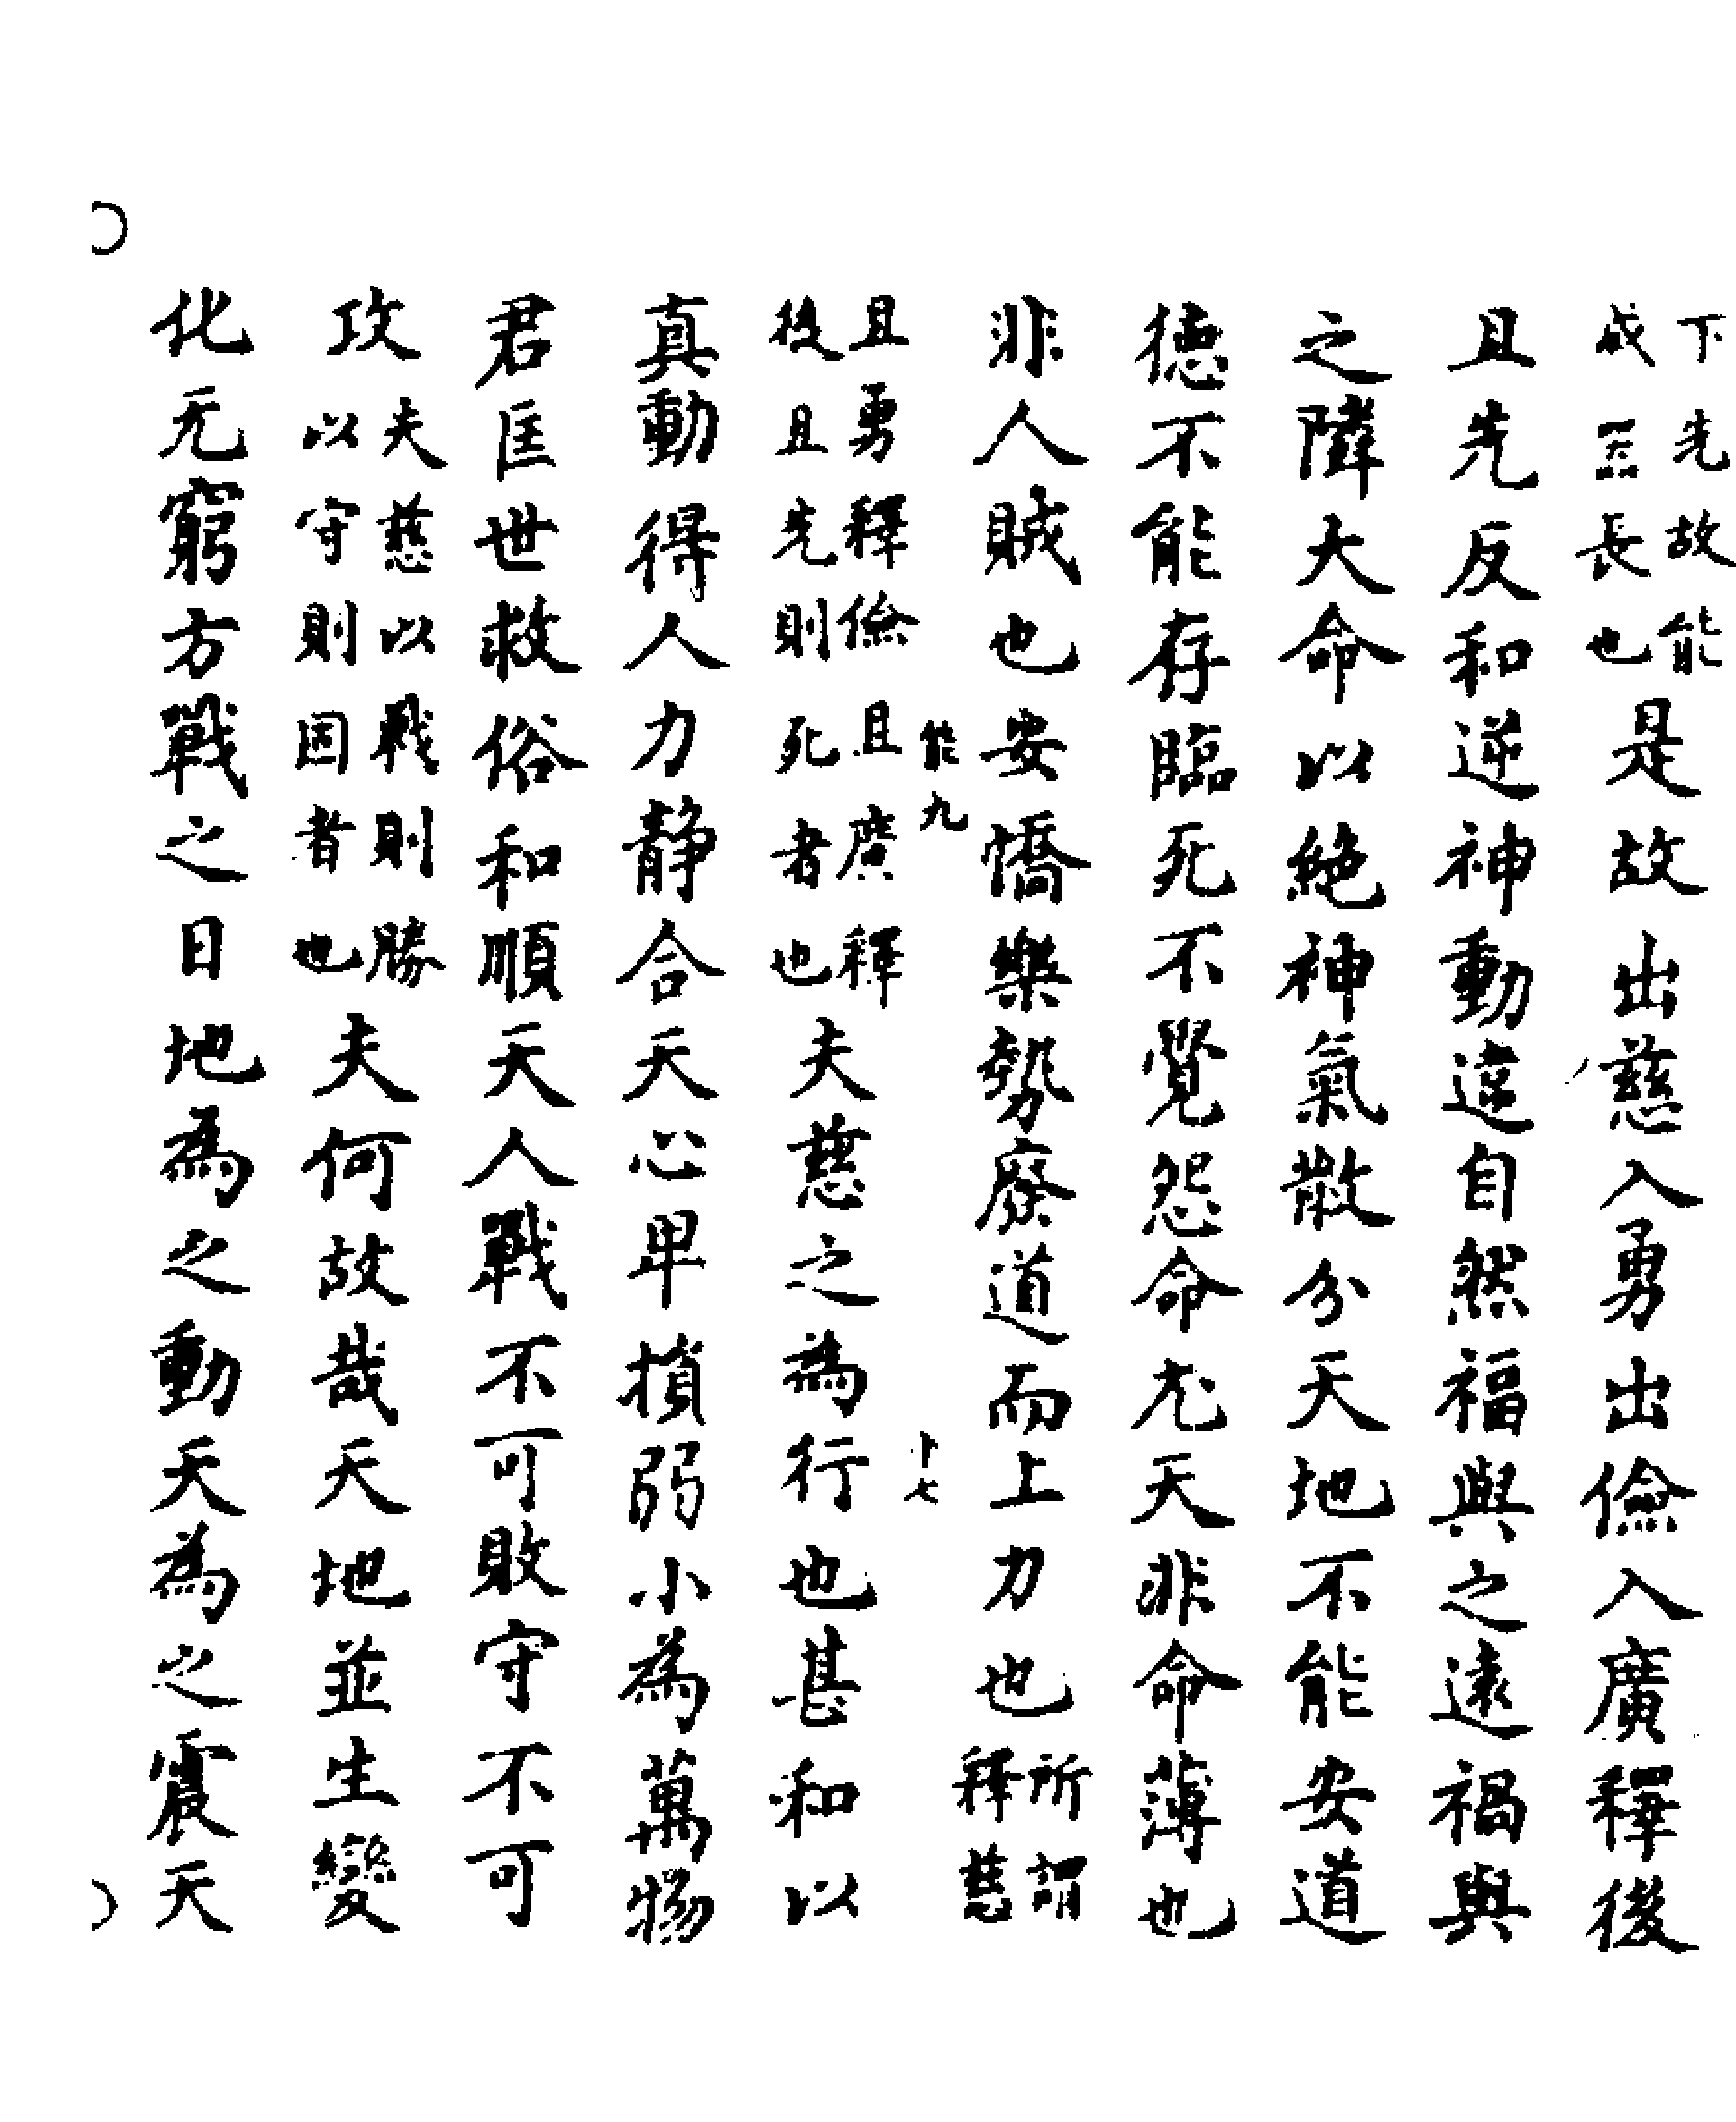 下先故能
成器長也
是故出慈入勇出儉入廣釋後
且先反和逆神動違自然福與之遠禍與
之隣大命以絕神氣散分天地不能安道
德不能存臨死不覺怨命尤天非命薄也
非人賊也安憍樂勢廢道而上力也
所謂
釋慈
能九
十七
且勇釋儉且廣釋
後且先則死者也
夫慈之為行也甚和以
真動得人力静合天心卑損弱小為萬物
君匡世救俗和順天人戰不可敗守不可
攻
夫慈以戰則勝
以守則固者也
夫何故哉天地並生變
化无窮方戰之日地為之動天為之震天